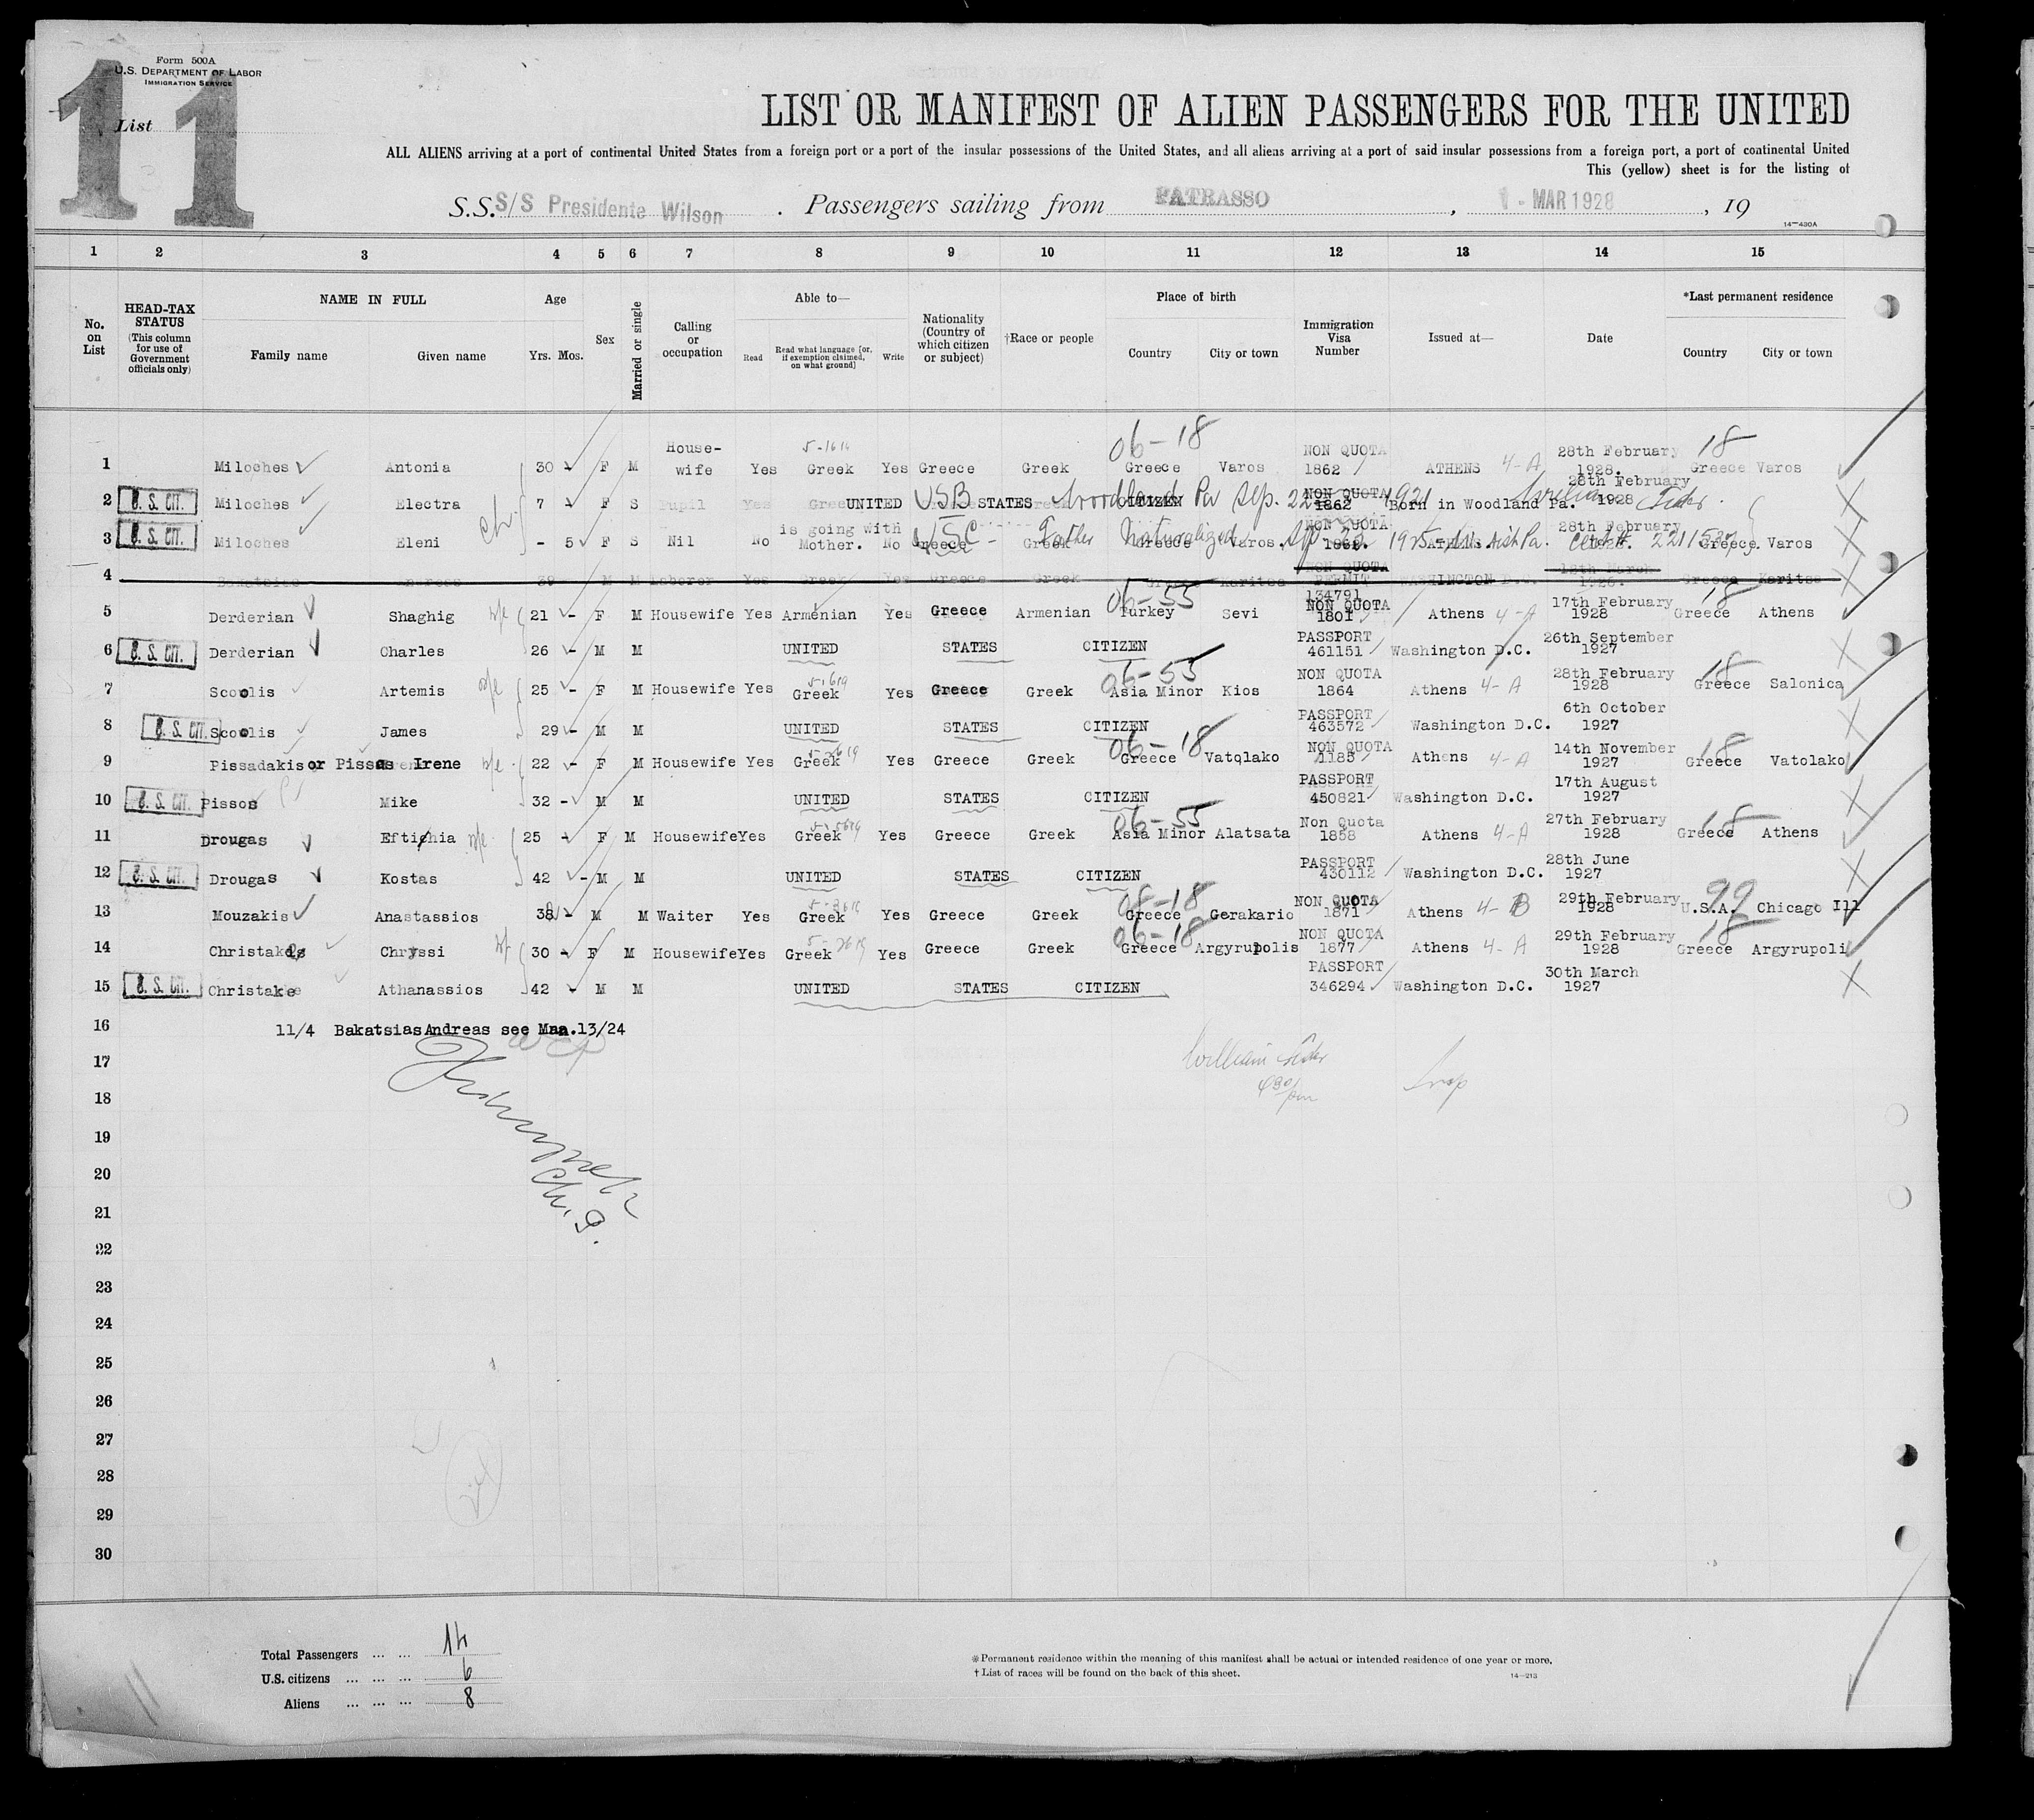 11
Form 500A
U.S. DEPARTMENT OF LABOR
IMMIGRATION SERVICE
List
LIST OR MANIFEST OF ALIEN PASSENGERS FOR THE UNITED
ALL ALIENS arriving at a port of continental United States from a foreign port or a port of the insular possessions of the United States, and all aliens arriving at a port of said insular possessions from a foreign port, a port of continental United
This (yellow) sheet is for the listing of
S.S. S/S Presidente Wilson . Passengers sailing from PATRASSO , 1 - MAR 1928 , 19
14—430A
1 2 3 4 5 6 7 8 9 10 11 12 13 14 15
No. on List
HEAD-TAX STATUS (This column for use of Government officials only)
NAME IN FULL
Family name Given name
Age
Yrs. Mos.
Sex
Married or single
Calling or occupation
Able to—
Read Read what language [or, if exemption claimed, on what ground] Write
Nationality (Country of which citizen or subject)
†Race or people
Place of birth
Country City or town
Immigration Visa Number
Issued at—
Date
*Last permanent residence
Country City or town
1 Miloches Antonia 30 - F M House-wife Yes Greek Yes Greece Greek 06-18 Greece Varos NON QUOTA 1862 ATHENS 4-A 28th February 1928. 18 Greece Varos
2 U. S. CIT. Miloches Electra 7 - F S Pupil Yes UNITED USB STATES Woodland Pa Sep. 22 1921 CITIZEN NON QUOTA 1862 Born in Woodland Pa. 28th February 1928
3 U. S. CIT. Miloches Eleni ch - 5 F S Nil No is going with Mother. No Greece USC - Greek Father Naturalized Greece Varos. NON QUOTA 1925 ATHENS Pa. 28th February 1928. Cert # Greece. Varos
4 Laborer Yes Greek Yes Greece Greek Karitsa NON QUOTA PERMIT 134791 WASHINGTON D.C. Greece Karitsa
5 Derderian Shaghig w/e 21 - F M Housewife Yes Armenian Yes Greece Armenian 06-55 Turkey Sevi NON QUOTA 1801 Athens 4-A 17th February 1928 18 Greece Athens
6 U. S. CIT. Derderian Charles 26 - M M UNITED STATES CITIZEN PASSPORT 461151 Washington D.C. 26th September 1927
7 Scoolis Artemis w/e 25 - F M Housewife Yes Greek Yes Greece Greek 06-55 Asia Minor Kios NON QUOTA 1864 Athens 4-A 28th February 1928 18 Greece Salonica
8 U. S. CIT. Scoolis James 29 - M M UNITED STATES CITIZEN PASSPORT 463572 Washington D.C. 6th October 1927
9 Pissadakis or Pissos Irene w/e 22 - F M Housewife Yes Greek Yes Greece Greek 06-18 Greece Vatolako NON QUOTA 1185 Athens 4-A 14th November 1927 18 Greece Vatolako
10 U. S. CIT. Pissos Mike 32 - M M UNITED STATES CITIZEN PASSPORT 450821 Washington D.C. 17th August 1927
11 Drougas Eftichia w/e 25 - F M Housewife Yes Greek Yes Greece Greek 06-55 Asia Minor Alatsata Non Quota 1858 Athens 4-A 27th February 1928 18 Greece Athens
12 U. S. CIT. Drougas Kostas 42 - M M UNITED STATES CITIZEN PASSPORT 430112 Washington D.C. 28th June 1927
13 Mouzakis Anastassios 38 - M M Waiter Yes Greek Yes Greece Greek 08-18 Greece Gerakario NON QUOTA 1871 Athens 4-B 29th February 1928 99 U.S.A. Chicago Ill
14 Christakis Chryssi 30 - F M Housewife Yes Greek Yes Greece Greek 06-18 Greece Argyrupolis NON QUOTA 1877 Athens 4-A 29th February 1928 18 Greece Argyrupoli
15 U. S. CIT. Christake Athanassios 42 - M M UNITED STATES CITIZEN PASSPORT 346294 Washington D.C. 30th March 1927
16 11/4 Bakatsias Andreas see Man.13/24
17 William
18 430 pm Insp
19
20
21
22
23
24
25
26
27
28
29
30
Total Passengers ... ... 14
U.S. citizens ... ... ... 6
Aliens ... ... ... 8
*Permanent residence within the meaning of this manifest shall be actual or intended residence of one year or more.
†List of races will be found on the back of this sheet.
14—213